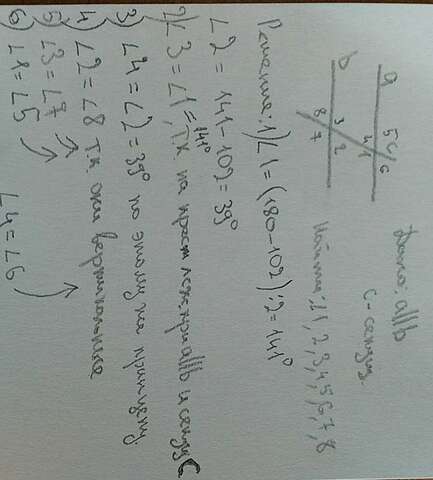 Дано: a||b
c - секущ.
Найти: ∠1, 2, 3, 4, 5, 6, 7, 8
a
b
5 c
6
4 1
3
2
8
7
Решение: 1) ∠1 = (180-102):2 = 141°
∠2 = 141-102 = 39°
2) ∠3 = ∠1 = 141°, т.к. на крест леж. при a||b и секущ c
3) ∠4 = ∠2 = 39° по этому же принципу
4) ∠2 = ∠8 т.к. они вертикальные
5) ∠3 = ∠7
6) ∠1 = ∠5
∠4 = ∠6